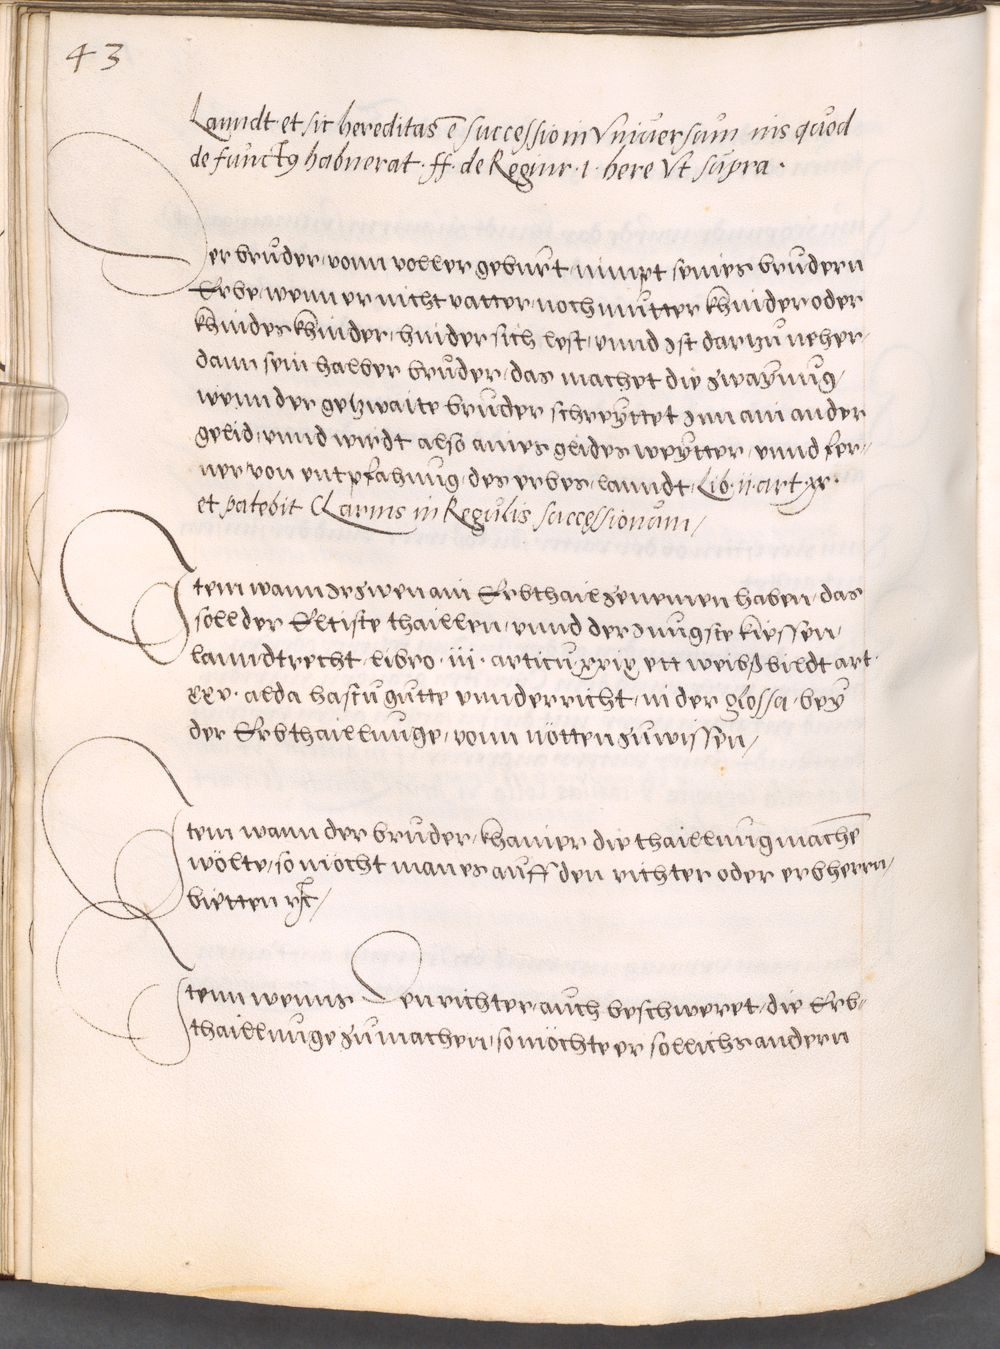 43
Lanndt · et sic hereditas ẽ successio in Vniuersum ius quod
defunctꝰ habuerat · ff · de Regiur · l · here Vt supra ·
Der brůder / vonn voller geburt / nimpt seines brudern
Erbe / wenn er nicht vatter / noch můtter khinder oder
khindes khinder / hinder sich lest / vnnd Ist dartzů neher /
dann sein halber brůder / das machet die zwaÿung /
wenn der getzwaite brůder schreÿttet Inn ain ander
gelid / vnnd wirdt also aines glides weÿtter / vnnd fer=
ner von entpfahung / des erbes / lanndt / Lib · ii · art xx ·
et patebit Clarius in Regulis successionum /
Item wann Ir zwen ain Erbthail zenemen haben / das
soll der Eltiste thaillen / vnnd der Jungste kiessen /
lanndtrecht · libro · iii · articu · xxix ett weibßbildt art ·
xxv · alda hastu gutte vnnderricht / in der glossa · beÿ
der Erbthaillunge / vonn nötten zuwissen /
Item wann der brůder / khainer die thaillung machẽ
wölte / so möcht man es auff den richter oder erbherrn /
bietten ꝛc /
Item wenns Den richter / auch beschweret / die Erb=
thaillunge zu machen / so möchte er sollichs andern